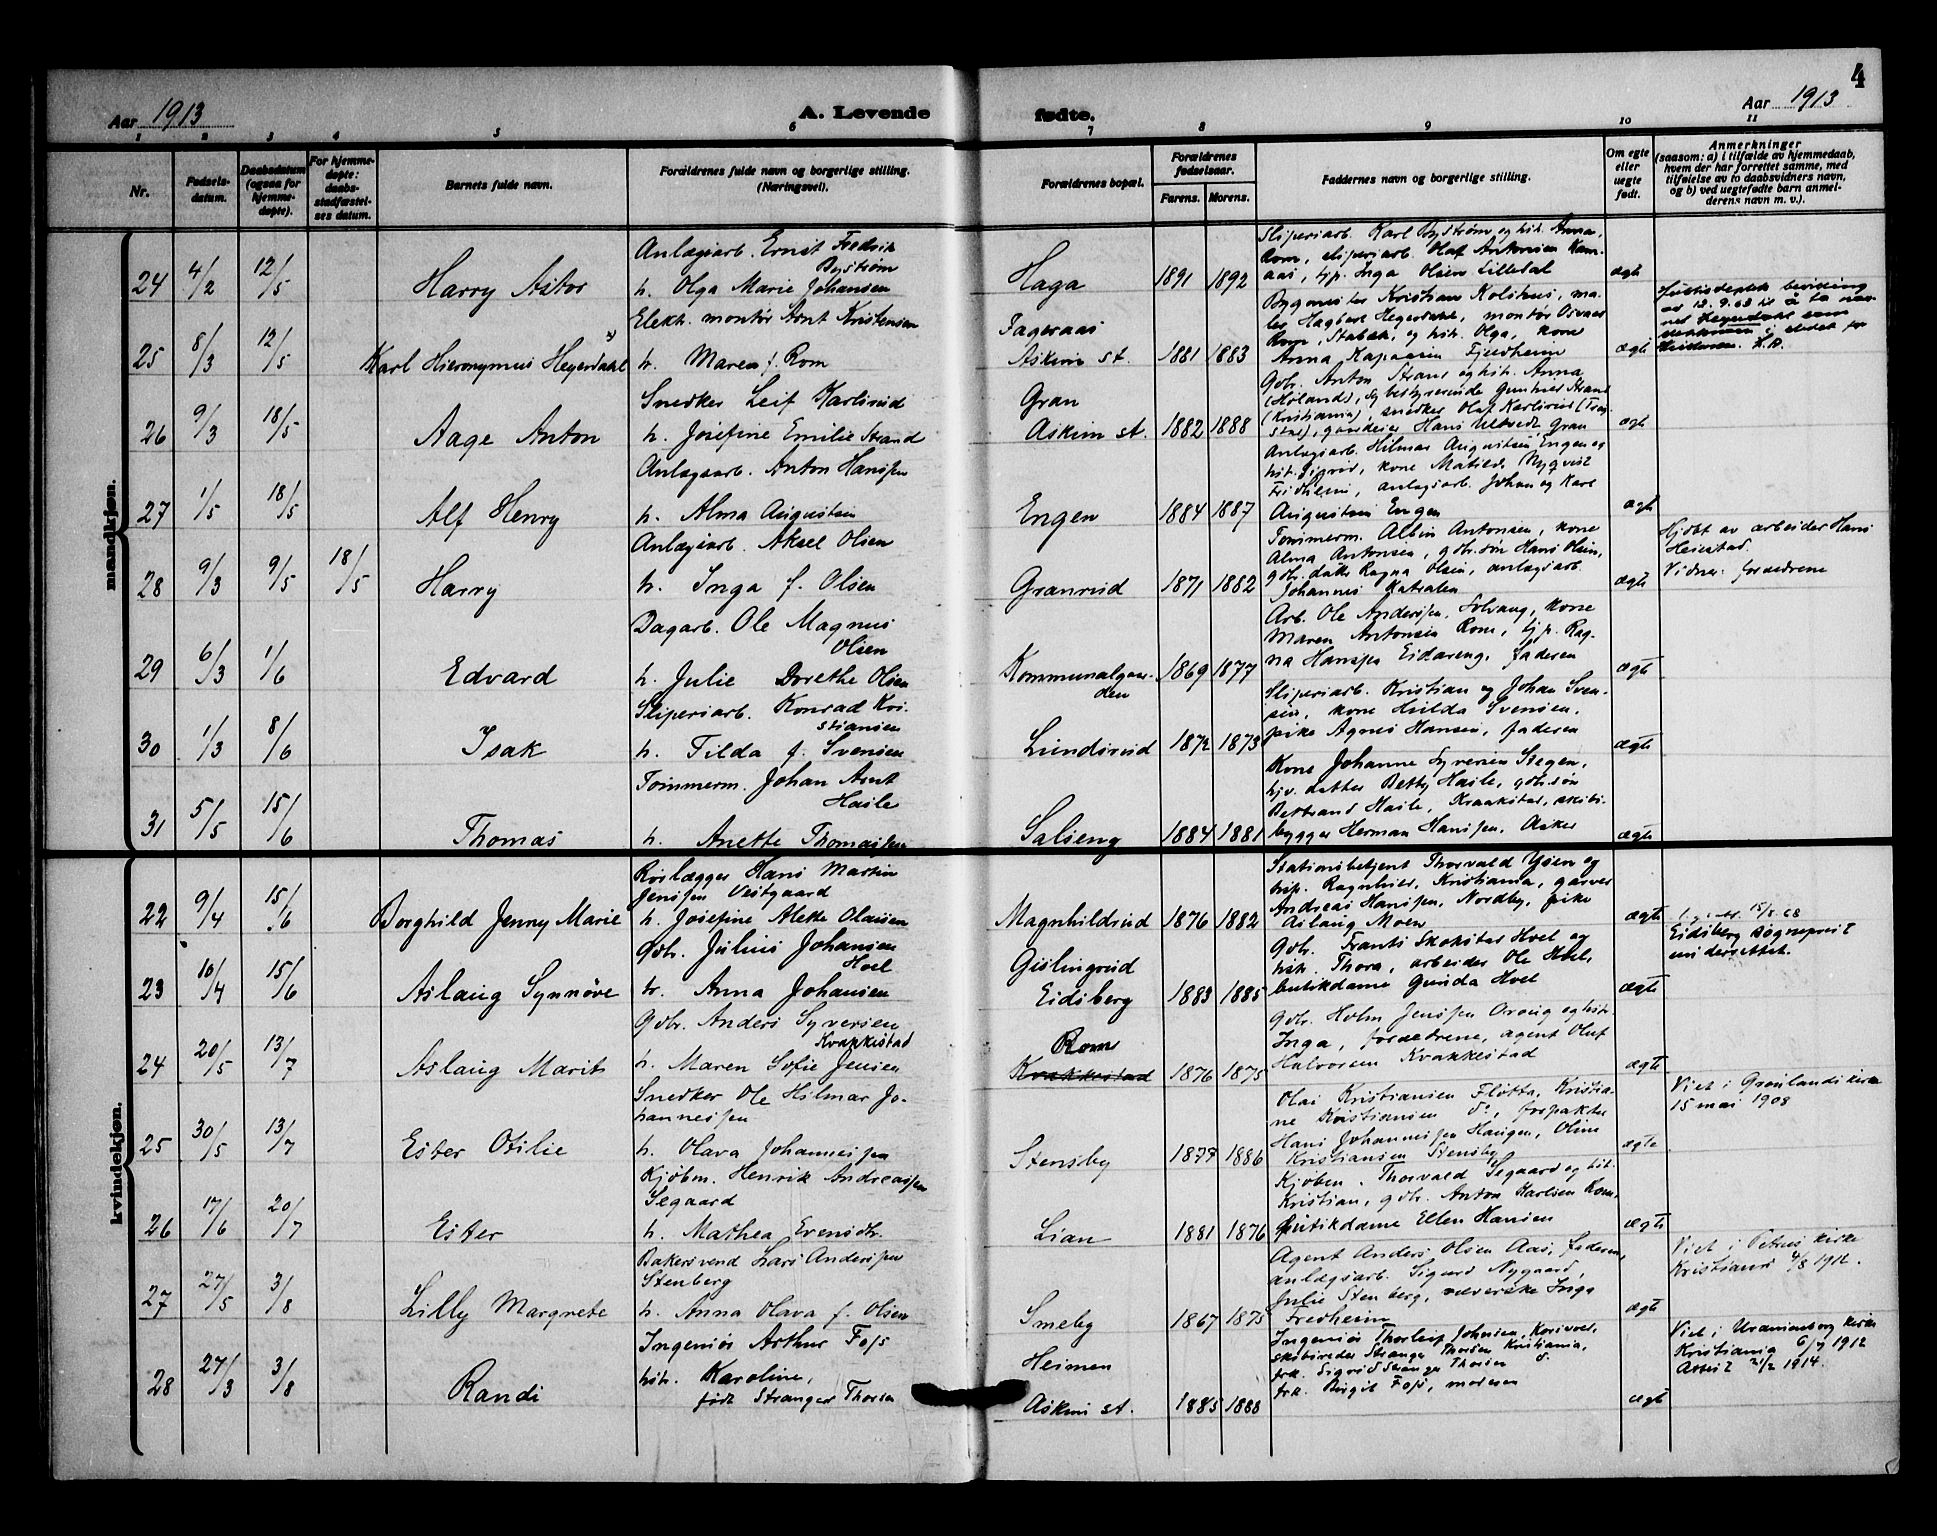 4
Aar 1913
A. Levende
fødte.
Aar 1913
1 2 3 4 5 6 7 8 9 10 11
Nr.
Fødsels-
datum.
Daabsdatum
(ogsaa for
hjemme-
døpte).
For hjemme-
døpte:
daabs-
stadfæstel-
ses datum.
Barnets fulde navn.
Forældrenes fulde navn og borgerlige stilling.
(Næringsvei).
Forældrenes bopæl.
Forældrenes
fødselsaar.
Farens. Morens.
Faddernes navn og borgerlige stilling.
Om egte
eller
uegte
født.
Anmerkninger
(saasom: a) i tilfælde av hjemmedaab,
hvem der har forrettet samme, med
tilføielse av to daabsvidners navn,
og b) ved uegtefødte barn anmel-
derens navn m. v.).
mandkjøn.
24 4/2 12/5 Harry Astor
Anlægsarb. Ernst Fredrik
Bystrøm
h. Olga Marie Johansen
Haga 1891 1892
Sliperiarb. Karl Bystrøm og hst. Anna,
Rom, sliperiarb. Olaf Antonsen Kam-
aas, tjp. Inga Olsen Lilledal
ægte
25 8/3 12/5 Karl Hieronymus Heyerdahl x)
Elektr. montør Arnt Kristensen
h. Maren f. Rom
Fageraas
Askim st. 1881 1883
Bygmester Kristian Kolshus, ma-
ler Hagbert Heyerdahl, montør Osvald
Rom, Stabæk, og hst. Olga, kone
Anna Kaspersen Fjeldheim
ægte
26 9/3 18/5 Aage Anton
Snedker Leif Karlsrud
h. Josefine Emilie Strand
Gran
Askim st. 1882 1888
Gdbr. Anton Strand og hst. Anna
(Høland), bestyrerinde Gunhild Strand
(Kristiania), snedker Olaf Karlsrud
gaardeier Hans Gran
ægte
27 1/5 18/5 Alf Henry
Anlægsarb. Anton Hanssen
h. Alma Augustsen
Engen 1884 1887
Anlægsarb. Hilmar Augustsen Engen og
hst. Sigrid, kone Matilde Nyqvist
Fridheim, anlægsarb. Johan og Karl
Augustsen Engen
ægte
28 9/3 9/5 18/5 Harry
Anlægsarb. Aksel Olsen
h. Inga f. Olsen
Granrud 1871 1882
Tømmerm. Albin Antonsen, kone
Alma Antonsen, gdbr.søn Hans Olsen,
gdbr. datter Ragna Olsen, anlægsarb.
Johannes
ægte
Hjdbt av arbeider Hans
Heiestad.
Vidner: forældrene
29 6/3 1/6 Edvard
Dagarb. Ole Magnus
Olsen
h. Julie Dorethe Olsen
Kommunalgaar-
den 1869 1877
Arb. Ole Anderssen, Solvang, kone
Maren Antonsen Rom, tjp. Rag-
na Hanssen Eidareng, faderen
ægte
30 1/3 8/6 Isak
Sliperiarb. Konrad Kri-
stiansen
h. Tilda f. Svensen
Lundsrud 1872 1873
Sliperiarb. Kristian og Johan Sven-
sen, kone Hulda Svensen,
pike Agnes Hansen, faderen
ægte
31 5/5 15/6 Thomas
Tømmerm. Johan Arnt
Haile
h. Anette Thomassen
Salseng 1884 1881
Kone Johanne Syversen Stegen,
hjv. datter Betty Haile, gdbr.søn
Bertrand Haile, Kraakstad, skibs-
bygger Herman Hanssen, Asker
ægte
kvindekjøn.
22 9/4 15/6 Borghild Jenny Marie
Rørlægger Hans Martin
Jenssen Vestgaard
h. Josefine Alette Olausen
Magnhildsrud 1876 1882
Stationsbetjent Thorvald Ysen og
hst. Ragnhild, Kristiania, garver
Andreas Hanssen, Nordby, pike
Aslaug Moen
ægte
15/5.68
Eidsberg sogneprest
underrettet.
23 10/4 15/6 Aslaug Synnøve
Gdbr. Julius Johansen
Hoel
h. Anna Johansen
Gislingrud
Eidsberg 1883 1885
Gdbr. Frants Skokstad Hoel og
hst. Thora, arbeider Ole Hoel,
butikdame Gunda Hoel
ægte
24 20/5 13/7 Aslaug Marit
Gdbr. Anders Syversen
Kvakkestad
h. Maren Sofie Jensen
Rom
Kvakkestad 1876 1875
Gdbr. Holm Jenssen Oraug og hst.
Inga, forældrene, agent Oluf
Halvorsen Kvakkestad
ægte
25 30/5 13/7 Ester Otilie
Snedker Ole Hilmar Jo-
hannessen
h. Olava Johannessen
Stensby 1877 1886
Olai Kristiansen Fløtta, Kristia-
ne Kristiansen do, forpakter
Hans Johannessen Haugen, Oline
Kristiansen Stensby
ægte
Viet i Grønlands kirke
15 mai 1908
26 17/6 20/7 Ester
Kjøbm. Henrik Andreassen
Segaard
h. Mathea Evensdtr.
Lian 1881 1876
Kjøbm. Thorvald Segaard og hst.
Kristian, gdbr. Anton Karlsen Rom,
butikdame Ellen Hansen
ægte
27 27/5 3/8 Lilly Margrete
Bakersvend Lars Anderssen
Stenberg
h. Anna Olava f. Olsen
Smeby 1867 1875
Agent Anders Olsen Aas, faderen,
anlægsarb. Sigurd Nygaard,
Julie Stenberg, væverske Inga
Fredheim
ægte
Viet i Petrus kirke
Kristiania 4/8 1912.
28 27/3 3/8 Randi
Ingeniør Arthur Foss
hst. Karoline,
født Stranger Thorsen
Heimen
Askim st. 1885 1888
Ingeniør Thorleif Johnsen, Korsvoll,
skibsreder Stranger Thorsen Kristiania,
frk. Sigrid Stranger Thorsen do
frk. Birgit Foss, moderen
ægte
Viet i Uranienborg kirke
Kristiania 6/7 1912
Attest 21/2 1914.